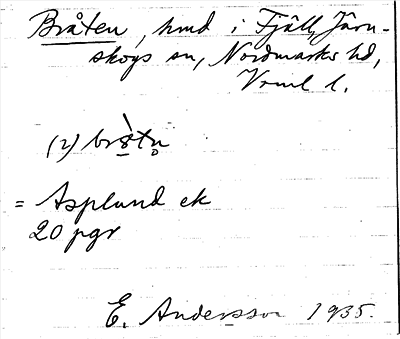 Bråten, hmd i Fjäll, Järn-
skogs sn, Nordmarks hd,
Vrml l.
(2) bròtn̥
= Asplund ek
20 pgr
E. Andersson 1935.